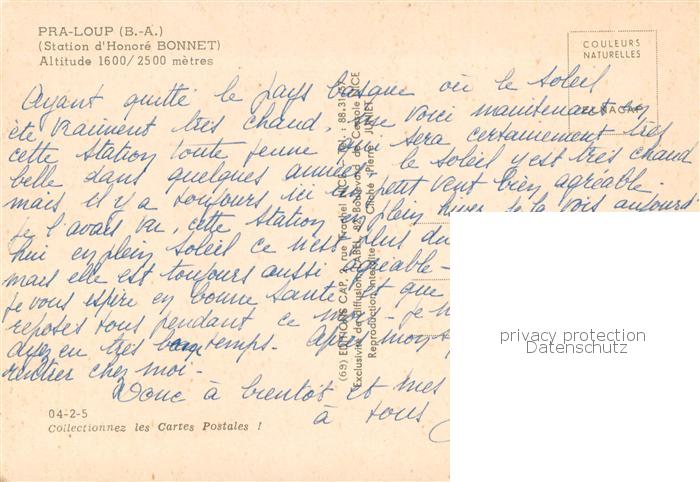 PRA-LOUP (B.-A.)
(Station d'Honoré BONNET)
Altitude 1600/2500 mètres
COULEURS
NATURELLES
Ayant quitté le pays basque où le soleil
été vraiment très chaud, me voici maintenant en
cette station toute jeune qui sera certainement très
belle dans quelques années. le soleil y est très chaud
mais il y a toujours ici un petit vent bien agréable.
je l'avais vu, cette station en plein hiver je la vois aujourd'
hui en plein soleil ce n'est plus du
mais elle est toujours aussi agréable -
je vous espère en bonne santé et que
reposés tous pendant ce mois - je
ayez eu très beau temps. Après mon
rentrer chez moi -
Donc à bientôt et mes
à tous
(69) EDITIONS CAP, rue Trachel NICE - Tél. : 88.31
Exclusivité de diffusion Boulevard de Cessole NICE
Reproduction interdite Cliché Pierre JUNIET
04-2-5
Collectionnez les Cartes Postales !
privacy protection
Datenschutz